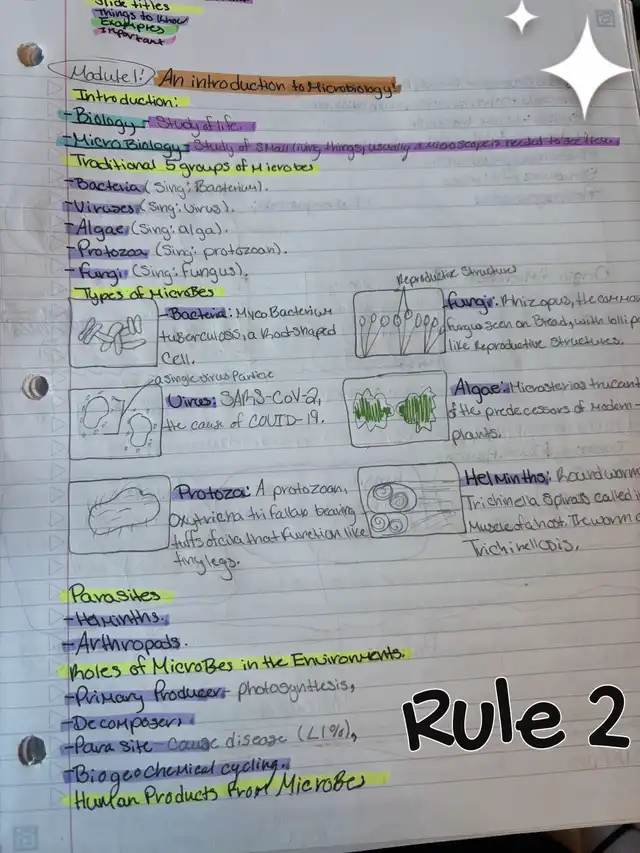 Slide titles
Things to know
Examples
Important
Module 1: An introduction to Microbiology!
Introduction:
-Biology- Study of life.
-MicroBiology- Study of small living things, usually a microscope is needed to see these.
Traditional 5 groups of Microbes
-Bacteria (Sing: Bacterium).
-Viruses (Sing: Virus).
-Algae (Sing: alga).
-Protozoa (Sing: protozoan).
-Fungi (Sing: Fungus).
Types of MicroBes
-Bacteria: MycoBacterium
tuberculosis, a Rod-shaped
Cell.
Reproductive Structures
Fungi: Rhizopus, the common
fungus seen on Bread, with lollipo
like Reproductive Structures.
a single virus Particle
Virus: SARS-CoV-2,
the cause of COVID-19.
Algae: Micrasterias truncant
of the predecessors of modern-
plants.
Protoza: A protozoan,
Oxytricha trifallax bearing
tuffs of cilia that function like
tiny legs.
Helminths: Roundworm
Trichinella Spiralis called
Muscle of a host. The worm
Trichinellosis.
Parasites
-Helminths.
-Arthropods.
Roles of MicroBes in the Environments.
-Primary Producer- photosynthesis,
-Decomposer,
-Parasite- Cause disease (<1%),
-Biogeochemical cycling.
Human Products From MicroBes
Rule 2